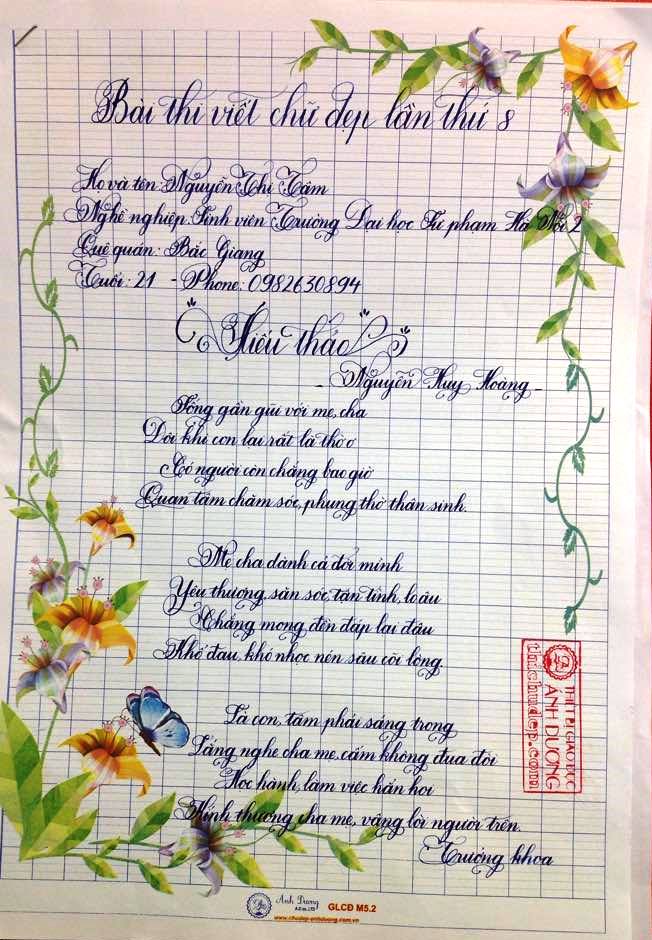 Bài thi viết chữ đẹp lần thứ 8
Họ và tên: Nguyễn Thị Tâm
Nghề nghiệp: Sinh viên Trường Đại học Sư phạm Hà Nội 2
Quê quán: Bắc Giang
Tuổi: 21 - Phone: 0982630894
Hiếu thảo
- Nguyễn Huy Hoàng -
Sống gần gũi với mẹ, cha
Đôi khi con lại rất là thờ ơ
Có người còn chẳng bao giờ
Quan tâm chăm sóc, phụng thờ thân sinh.
Mẹ cha dành cả đời mình
Yêu thương, săn sóc, tận tình, lo âu
Chẳng mong đền đáp lại đâu
Khổ đau, khó nhọc nén sâu cõi lòng.
Là con, tâm phải sáng trong
Lắng nghe cha mẹ, cấm không đua đòi
Học hành, làm việc hẳn hoi
Kính thương cha mẹ, vâng lời người trên.
Trường khoa
THIẾT BỊ GIÁO DỤC
ÁNH DƯƠNG
thichudep.com
Anh Duong
GLCĐ M5.2
www.chudep-anhduong.com.vn